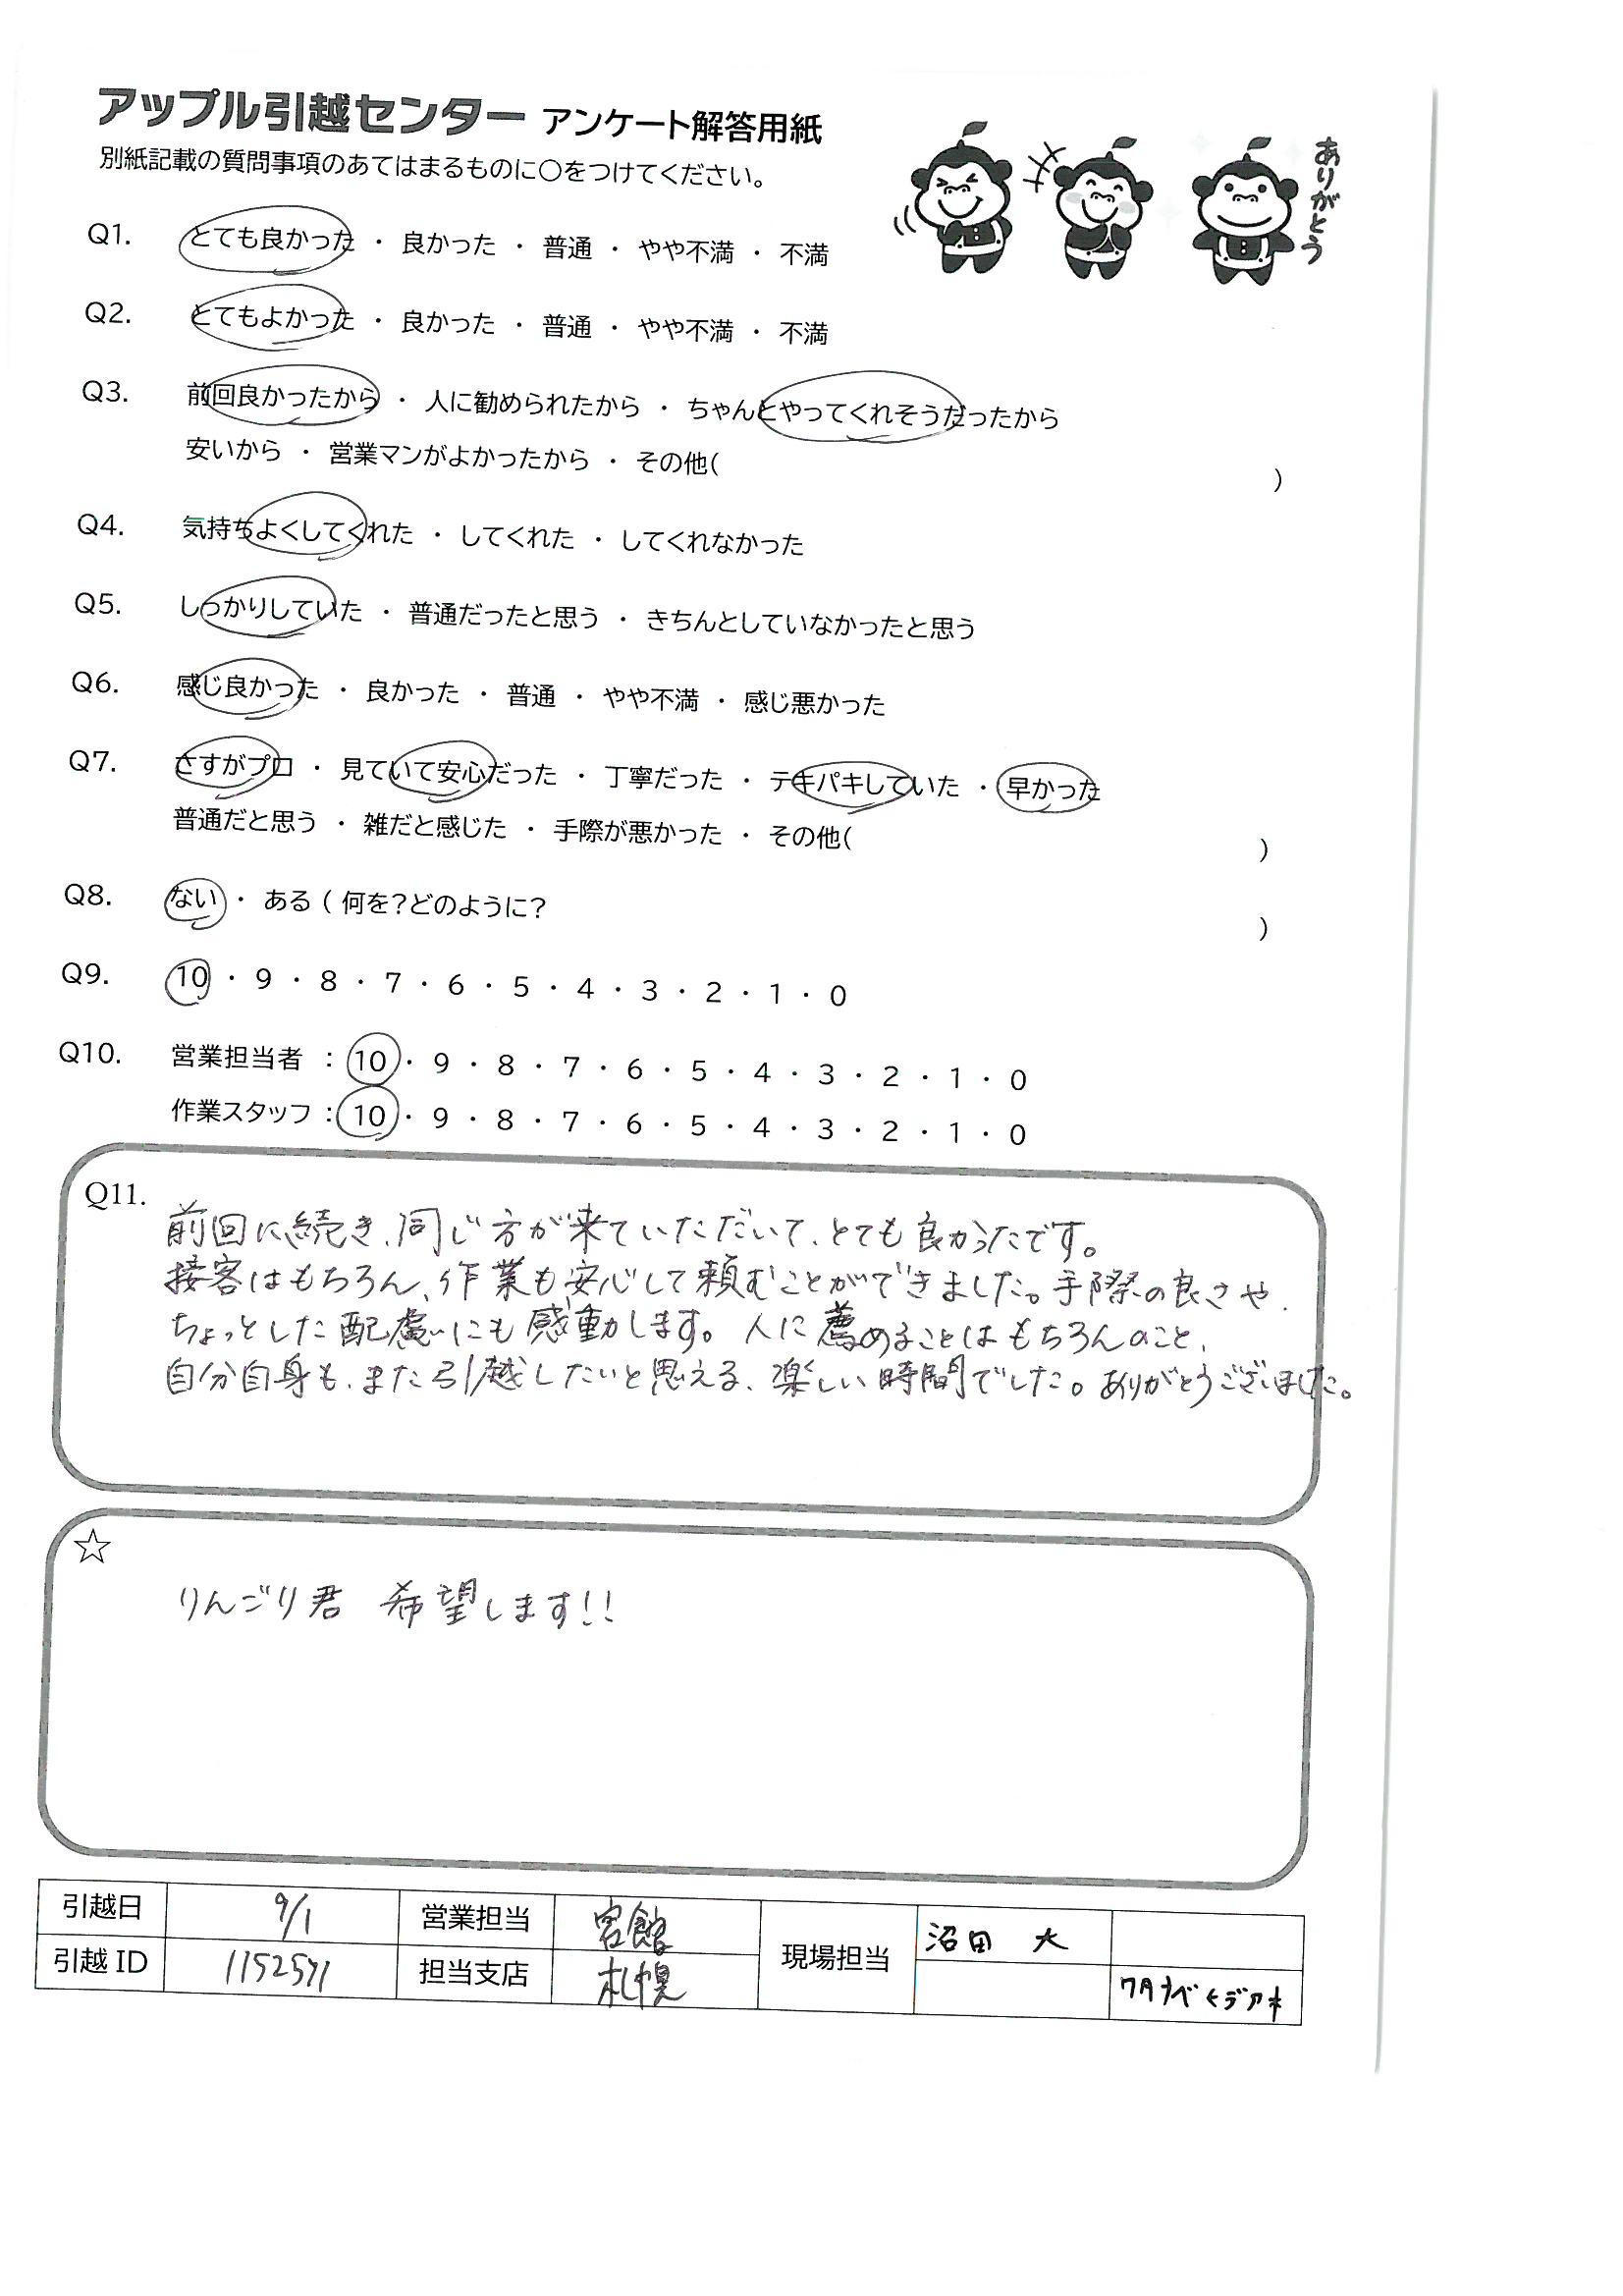 アップル引越センター アンケート解答用紙
別紙記載の質問事項のあてはまるものに○をつけてください。
ありがとう
Q1. とても良かった ・ 良かった ・ 普通 ・ やや不満 ・ 不満
Q2. とてもよかった ・ 良かった ・ 普通 ・ やや不満 ・ 不満
Q3. 前回良かったから ・ 人に勧められたから ・ ちゃんとやってくれそうだったから
安いから ・ 営業マンがよかったから ・ その他( )
Q4. 気持ちよくしてくれた ・ してくれた ・ してくれなかった
Q5. しっかりしていた ・ 普通だったと思う ・ きちんとしていなかったと思う
Q6. 感じ良かった ・ 良かった ・ 普通 ・ やや不満 ・ 感じ悪かった
Q7. さすがプロ ・ 見ていて安心だった ・ 丁寧だった ・ テキパキしていた ・ 早かった
普通だと思う ・ 雑だと感じた ・ 手際が悪かった ・ その他( )
Q8. ない ・ ある ( 何を?どのように? )
Q9. 10 ・ 9 ・ 8 ・ 7 ・ 6 ・ 5 ・ 4 ・ 3 ・ 2 ・ 1 ・ 0
Q10. 営業担当者 : 10 ・ 9 ・ 8 ・ 7 ・ 6 ・ 5 ・ 4 ・ 3 ・ 2 ・ 1 ・ 0
作業スタッフ : 10 ・ 9 ・ 8 ・ 7 ・ 6 ・ 5 ・ 4 ・ 3 ・ 2 ・ 1 ・ 0
Q11.
前回に続き、同じ方が来ていただいて、とても良かったです。
接客はもちろん、作業も安心して頼むことができました。手際の良さや、
ちょっとした配慮にも感動します。人に薦めることはもちろんのこと、
自分自身も、また引越したいと思える、楽しい時間でした。ありがとうございました。
☆
りんごり君 希望します!!
引越日 9/1 営業担当 現場担当 沼田 大
引越 ID 1152571 担当支店 札幌 ワタナベヒデアキ